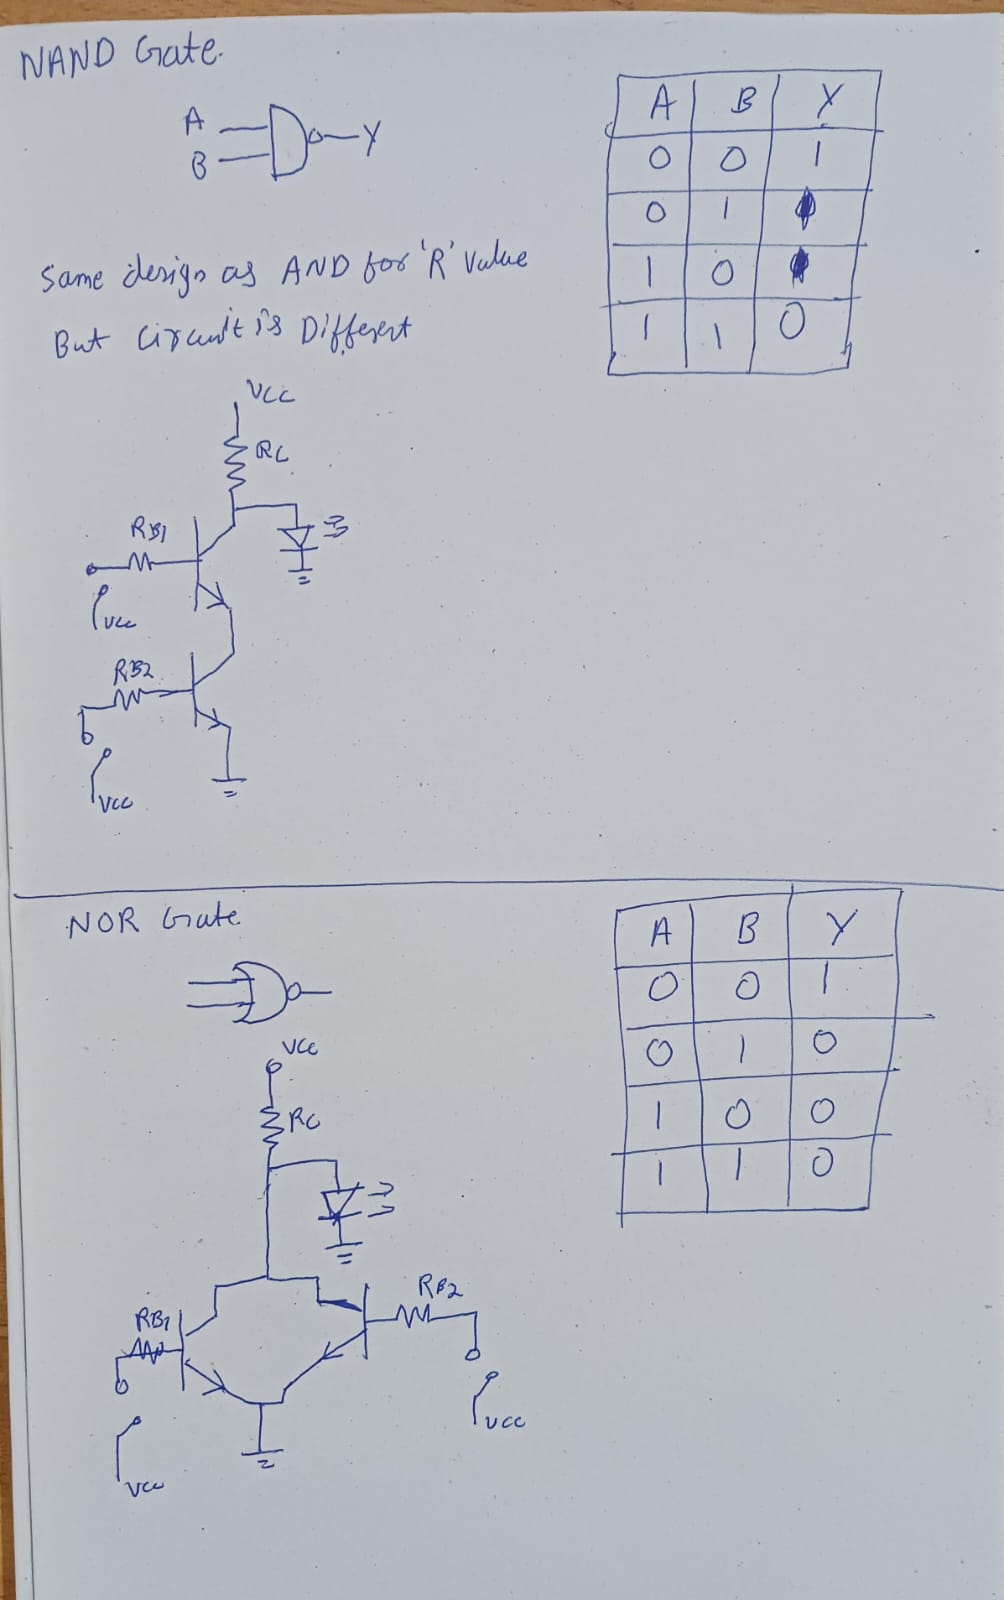 NAND Gate.
A
B
Y
A B Y
0 0 1
0 1
1 0
1 1 0
Same design as AND for 'R' Value
But Circuit is Different
VCC
RC
RB1
VCC
RB2
VCC
NOR Gate
A B Y
0 0 1
0 1 0
1 0 0
1 1 0
VCC
RC
RB1
RB2
VCC
VCC